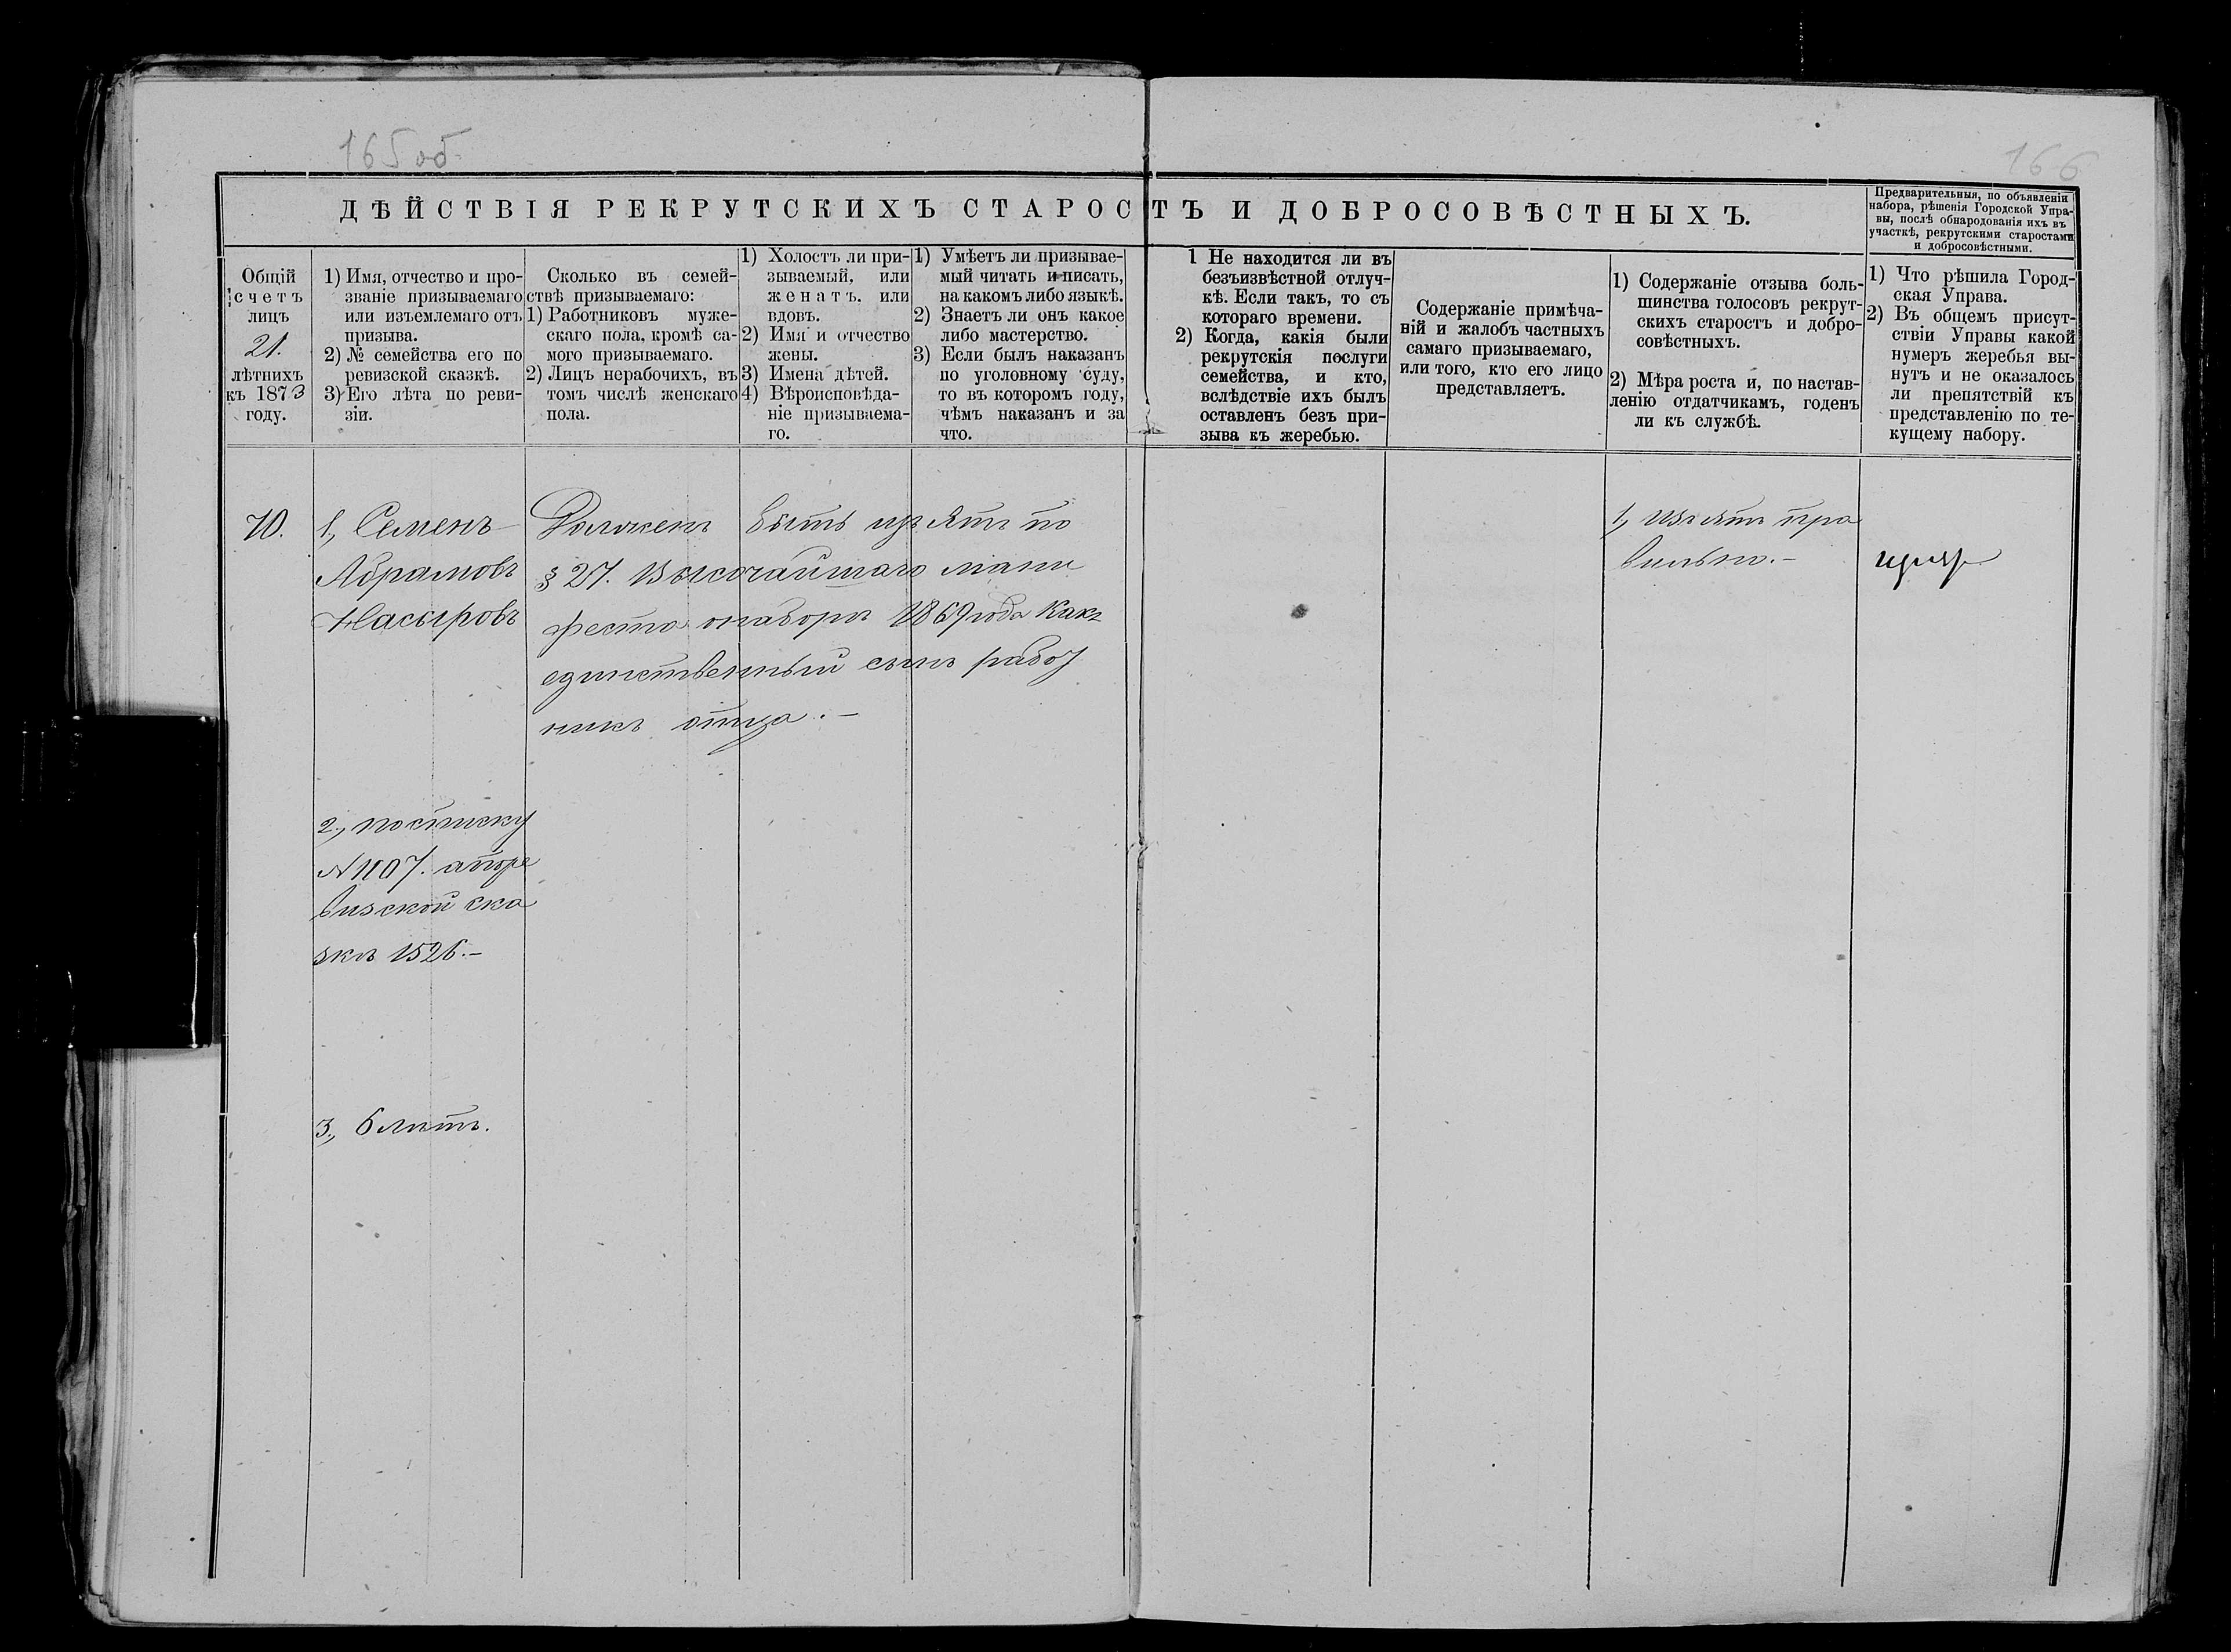 165 об
166
ДѢЙСТВІЯ РЕКРУТСКИХЪ СТАРОСТЪ И ДОБРОСОВѢСТНЫХЪ.
Предварительныя, по объявленіи
набора, рѣшенія Городской Упра-
вы, послѣ обнародованія ихъ въ
участкѣ, рекрутскими старостами
и добросовѣстными.
Общій
счетъ
лицъ
21.
лѣтнихъ
къ 1873
году.
1) Имя, отчество и про-
званіе призываемаго
или изъемлемаго отъ
призыва.
2) № семейства его по
ревизской сказкѣ.
3) Его лѣта по реви-
зіи.
Сколько въ семей-
ствѣ призываемаго:
1) Работниковъ муже-
скаго пола, кромѣ са-
мого призываемаго.
2) Лицъ нерабочихъ, въ
томъ числѣ женскаго
пола.
1) Холостъ ли при-
зываемый, или
женатъ. или
вдовъ.
2) Имя и отчество
жены.
3) Имена дѣтей.
4) Вѣроисповѣда-
ніе призываема-
го.
1) Умѣетъ ли призывае-
мый читать и писать,
на какомъ либо языкѣ.
2) Знаетъ ли онъ какое
либо мастерство.
3) Если былъ наказанъ
по уголовному суду,
то въ которомъ году,
чѣмъ наказанъ и за
что.
1 Не находится ли въ
безъизвѣстной отлуч-
кѣ. Если такъ, то съ
котораго времени.
2) Когда, какія были
рекрутскія послуги
семейства, и кто,
вслѣдствіе ихъ былъ
оставленъ безъ при-
зыва къ жеребью.
Содержаніе примѣча-
ній и жалобъ частныхъ
самаго призываемаго,
или того, кто его лицо
представляетъ.
1) Содержаніе отзыва боль-
шинства голосовъ рекрут-
скихъ старостъ и добро-
совѣстныхъ.
2) Мѣра роста и, по настав-
ленію отдатчикамъ, годенъ
ли къ службѣ.
1) Что рѣшила Город-
ская Управа.
2) Въ общемъ присут-
ствіи Управы какой
нумеръ жеребья вы-
нутъ и не оказалось
ли препятствій къ
представленію по те-
кущему набору.
70.
1, Семенъ
Абрамовъ
Насыровъ
Долженъ быть изъятъ по
§ 27. Высочайшаго мани
феста онаборѣ 1869 года какъ
единственный сынъ работ
никъ отца. –
1, изъятъ пра
вильно. –
2, посписку
№ 1107. апоре
визской ска
зкѣ 1526. –
3, 6 лѣтъ.